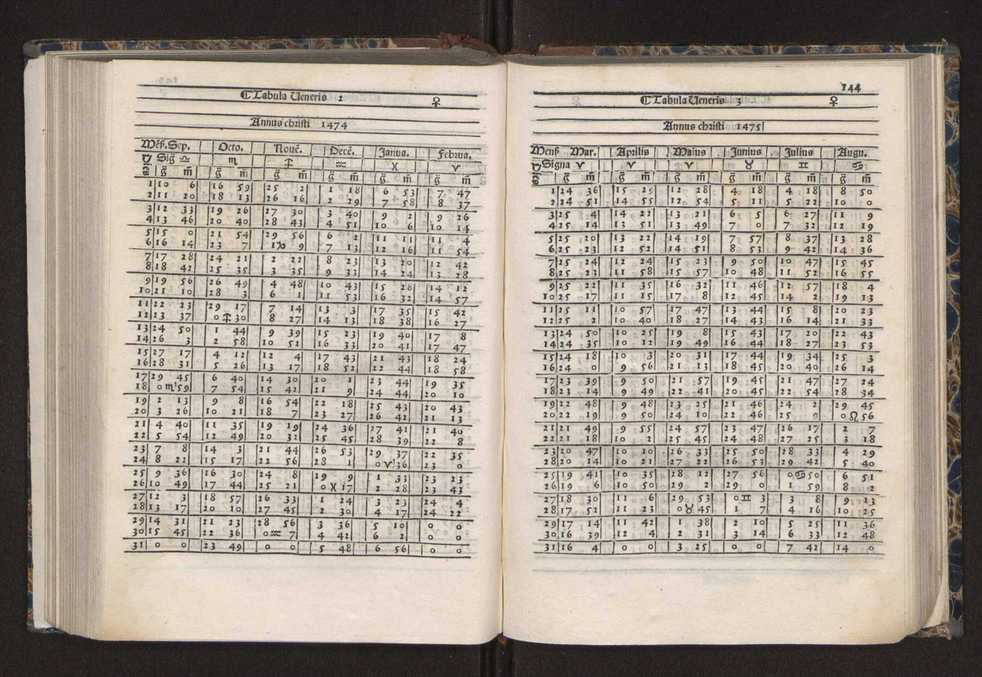 Tabula Ueneris 2 ♀
Annus christi 1474
Mēs. Sep. Octo. Nouē. Decē. Janua. Februa.
Sig ♎ ♏ ♐ ♒ ♓ ♈
g̃ m̃ g̃ m̃ g̃ m̃ g̃ m̃ g̃ m̃ g̃ m̃
1 10 6 16 59 25 2 1 18 6 53 7 47
2 11 20 18 13 26 16 2 29 7 58 8 37
3 12 33 19 26 27 30 3 40 9 2 9 26
4 13 46 20 40 28 43 4 51 10 6 10 14
5 15 0 21 54 29 56 6 2 11 11 11 4
6 16 14 23 7 1♑ 9 7 13 12 16 11 54
7 17 28 24 21 2 22 8 23 13 20 12 42
8 18 42 25 35 3 35 9 33 14 24 13 28
9 19 56 26 49 4 48 10 43 15 28 14 12
10 21 10 28 3 6 1 11 53 16 32 14 57
11 22 23 29 17 7 14 13 3 17 35 15 42
12 23 37 0♐30 8 27 14 13 18 38 16 27
13 24 50 1 44 9 39 15 23 19 40 17 8
14 26 3 2 58 10 52 16 33 20 41 17 47
15 27 17 4 12 12 4 17 43 21 43 18 24
16 28 31 5 26 13 17 18 52 22 44 18 58
17 29 45 6 40 14 30 20 1 23 44 19 35
18 0♏59 7 54 15 42 21 9 24 44 20 10
19 2 13 9 8 16 54 22 18 25 43 20 43
20 3 26 10 21 18 7 23 27 26 41 21 13
21 4 40 11 35 19 19 24 36 27 41 21 40
22 5 54 12 49 20 31 25 45 28 39 22 8
23 7 8 14 3 21 44 26 53 29 37 22 35
24 8 22 15 17 22 56 28 1 0♈36 23 0
25 9 36 16 30 24 8 29 9 1 33 23 23
26 10 49 17 44 25 21 0♓17 2 28 23 43
27 12 3 18 57 26 33 1 24 3 23 24 4
28 13 17 20 10 27 45 2 30 4 17 24 22
29 14 31 21 23 28 56 3 36 5 10 0 0
30 15 45 22 36 0♒7 4 42 6 2 0 0
31 0 0 23 49 0 0 5 48 6 56 0 0
144
Tabula Ueneris 3 ♀
Annus christi 1475
Mens Mar. Aprilis Maius Junius Julius Augu.
Signa ♈ ♈ ♈ ♉ ♊ ♋
g̃ m̃ g̃ m̃ g̃ m̃ g̃ m̃ g̃ m̃ g̃ m̃
1 24 36 15 25 12 28 4 18 4 18 8 50
2 24 51 14 55 12 54 5 11 5 22 10 0
3 25 4 14 22 13 21 6 5 6 27 11 9
4 25 14 13 51 13 49 7 0 7 32 12 19
5 25 20 13 22 14 19 7 57 8 37 13 28
6 25 23 12 52 14 51 8 53 9 42 14 36
7 25 24 12 24 15 23 9 50 10 47 15 45
8 25 23 11 58 15 57 10 48 11 52 16 55
9 25 22 11 35 16 32 11 46 12 57 18 4
10 25 17 11 15 17 8 12 45 14 2 19 13
11 25 11 10 57 17 47 13 44 15 8 20 23
12 25 2 10 40 18 27 14 43 16 14 21 33
13 24 50 10 25 19 8 15 43 17 20 22 43
14 24 35 10 12 19 49 16 44 18 27 23 53
15 24 18 10 3 20 31 17 44 19 34 25 3
16 24 0 9 56 21 13 18 45 20 40 26 14
17 23 39 9 50 21 57 19 45 21 47 27 24
18 23 14 9 49 22 41 20 45 22 54 28 34
19 22 48 9 48 23 25 21 46 24 1 29 45
20 22 19 9 50 24 10 22 46 25 9 0♌56
21 21 49 9 55 24 57 23 47 26 17 2 7
22 21 18 10 2 25 45 24 48 27 25 3 18
23 20 47 10 10 26 33 25 50 28 33 4 29
28 20 14 10 21 27 22 26 53 29 42 5 40
25 19 41 10 35 28 12 27 56 0♋50 6 51
26 19 6 10 50 29 2 29 0 1 59 8 2
27 18 30 11 6 29 53 0♊3 3 8 9 13
28 17 51 11 23 0♉45 1 7 4 16 10 25
29 17 14 11 42 1 38 2 10 5 25 11 36
30 16 39 12 4 2 31 3 14 6 33 12 48
31 16 4 0 0 3 25 0 0 7 42 14 0